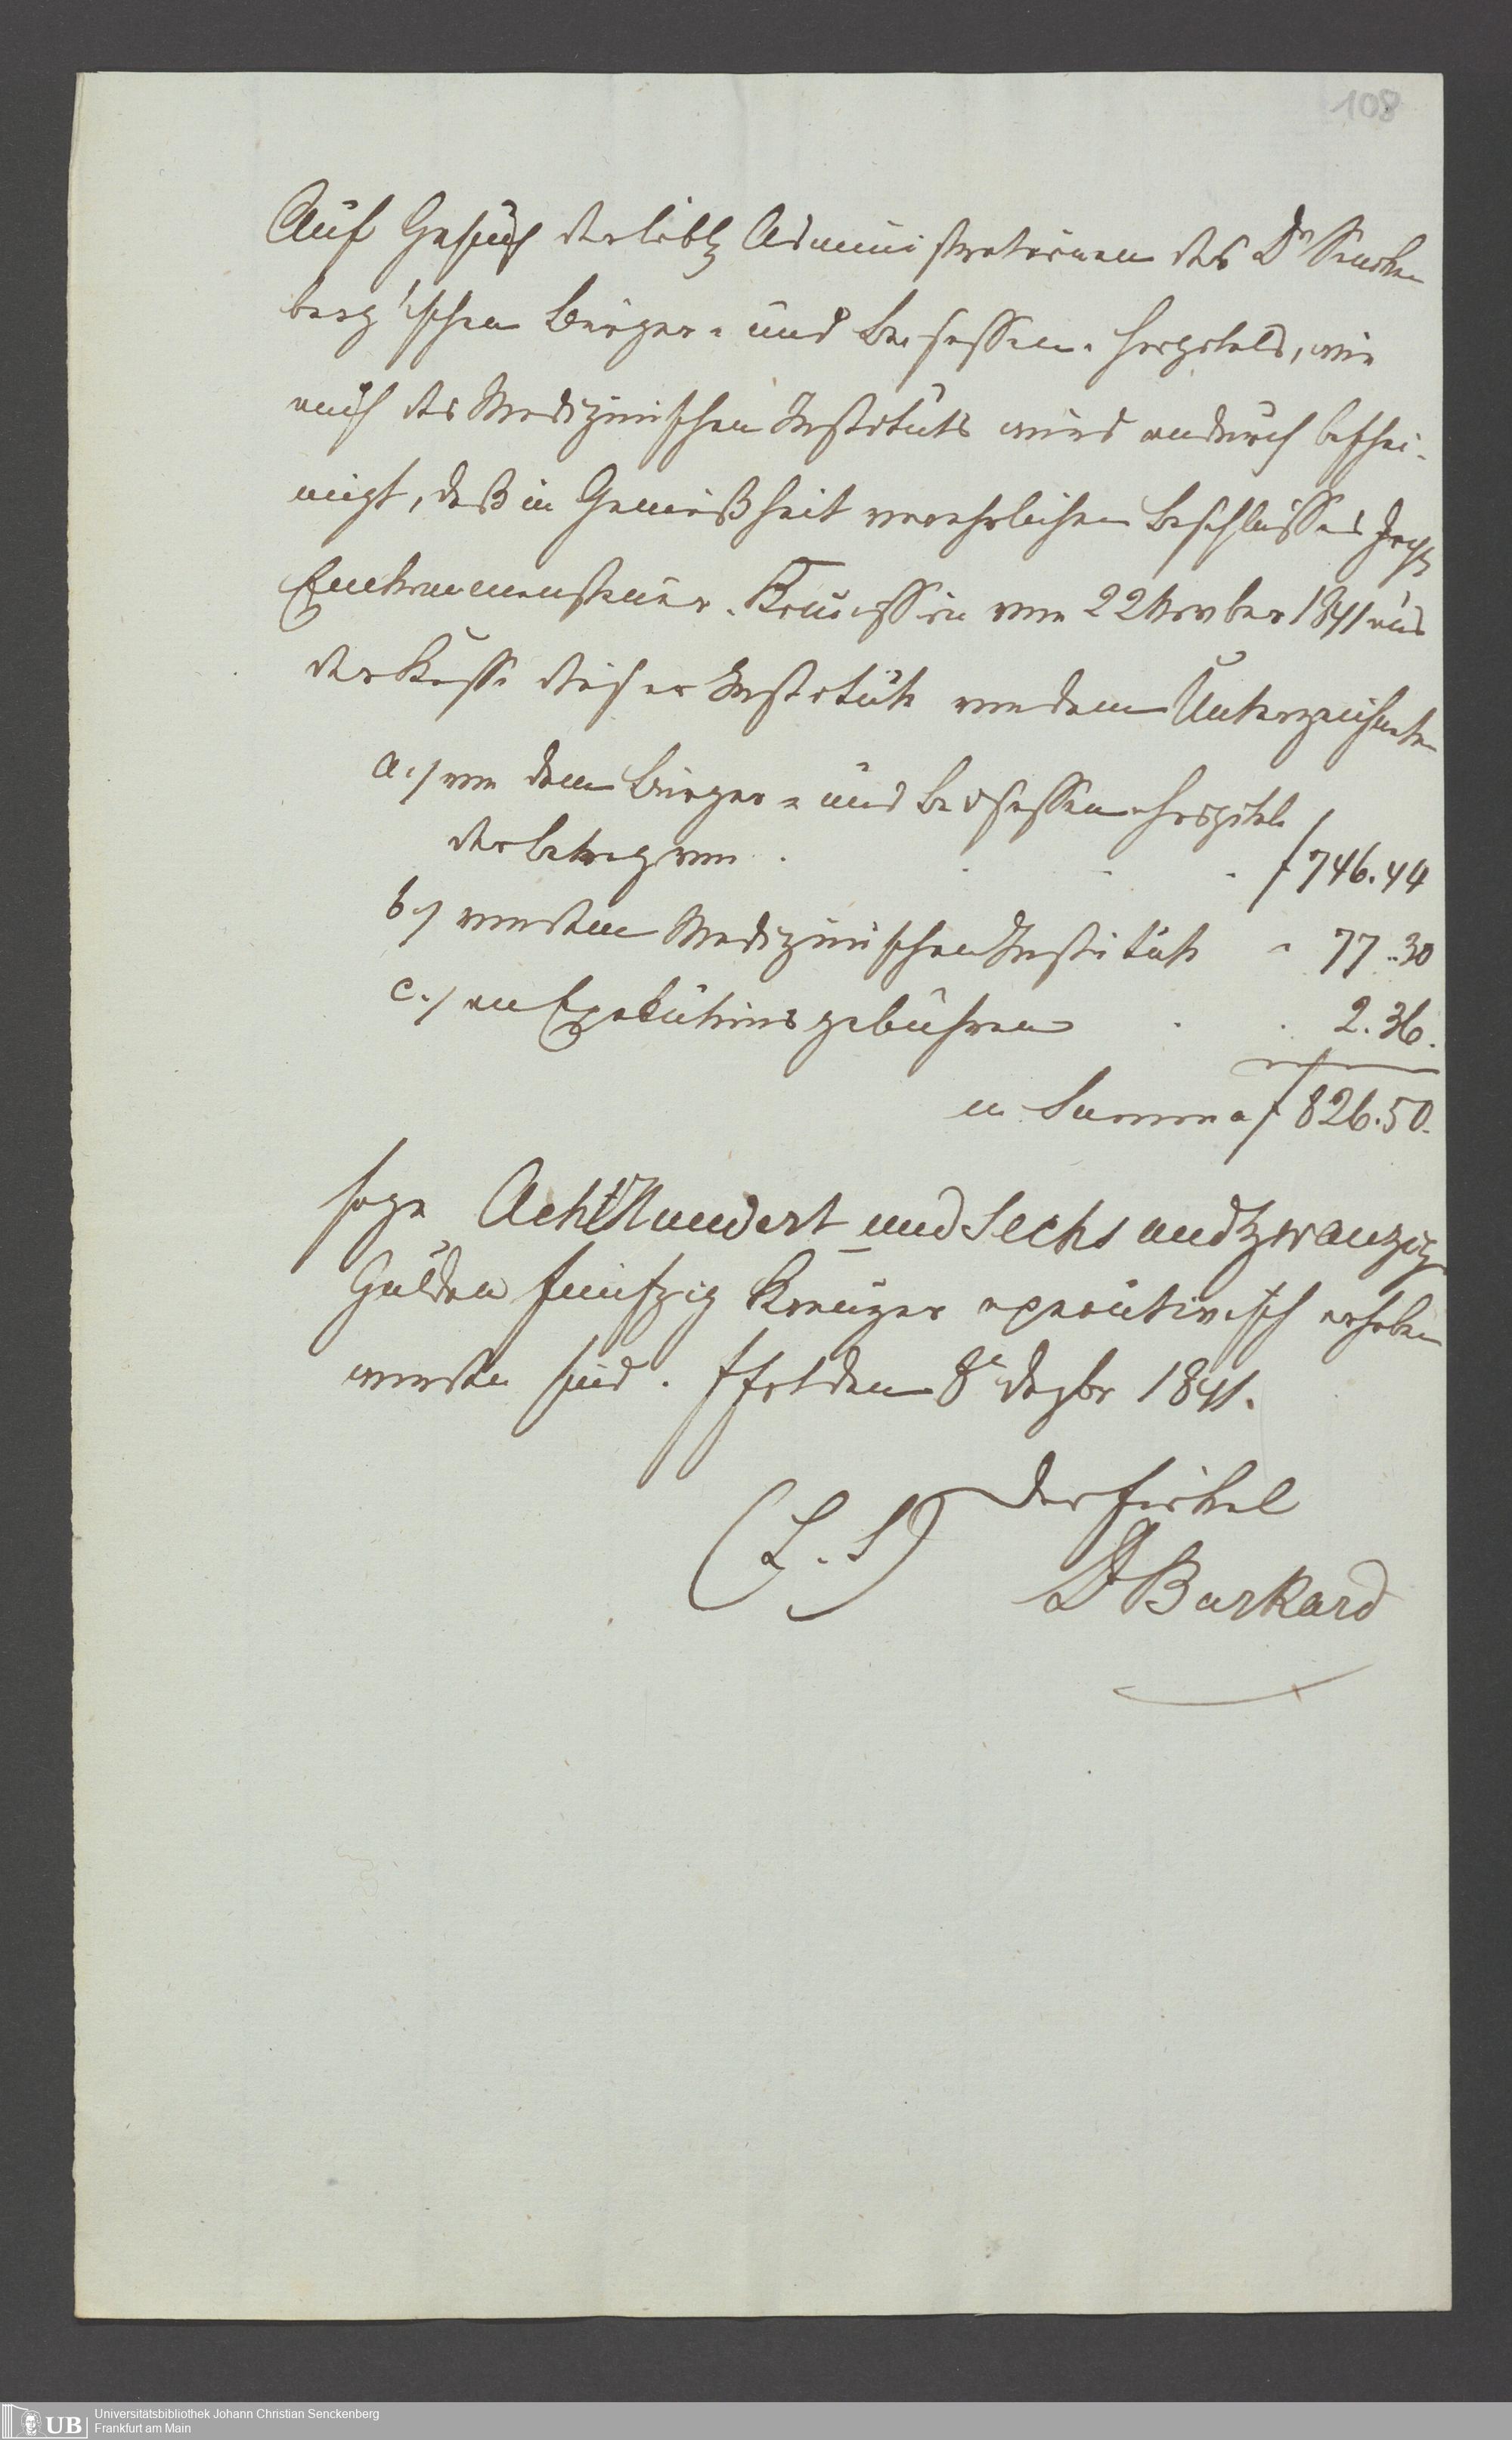 108
Auf Gesuch der löbl Administrationen des Dr Sencken
berg'schen Bürger- und Beisassen-Hospitals, wie
auch des Medizinischen Instituts wird andurch beschei-
nigt, daß in Gemäßheit verehrlichen Beschlusses
Einkommensteuer-Commission vom 22 Novber 1841 aus
der Kasse dieser Institute von dem Unterzeichneten
a.) von dem Bürger- und Beisassen-Hospitale
der Betrag von . . . . f 746.44
b.) von dem Medizinischen Institute " 77.30
c.) an Exekutionsgebühren . . 2.36.
in Summa f 826.50.
sage Achthundert und Sechsundzwanzig
Gulden fünfzig Kreuzer executivisch erhoben
worden sind. Ffrt den 8ten Dezbr 1841.
(L. S) Der Fiskal
Dr Burkard
UB
Universitätsbibliothek Johann Christian Senckenberg
Frankfurt am Main